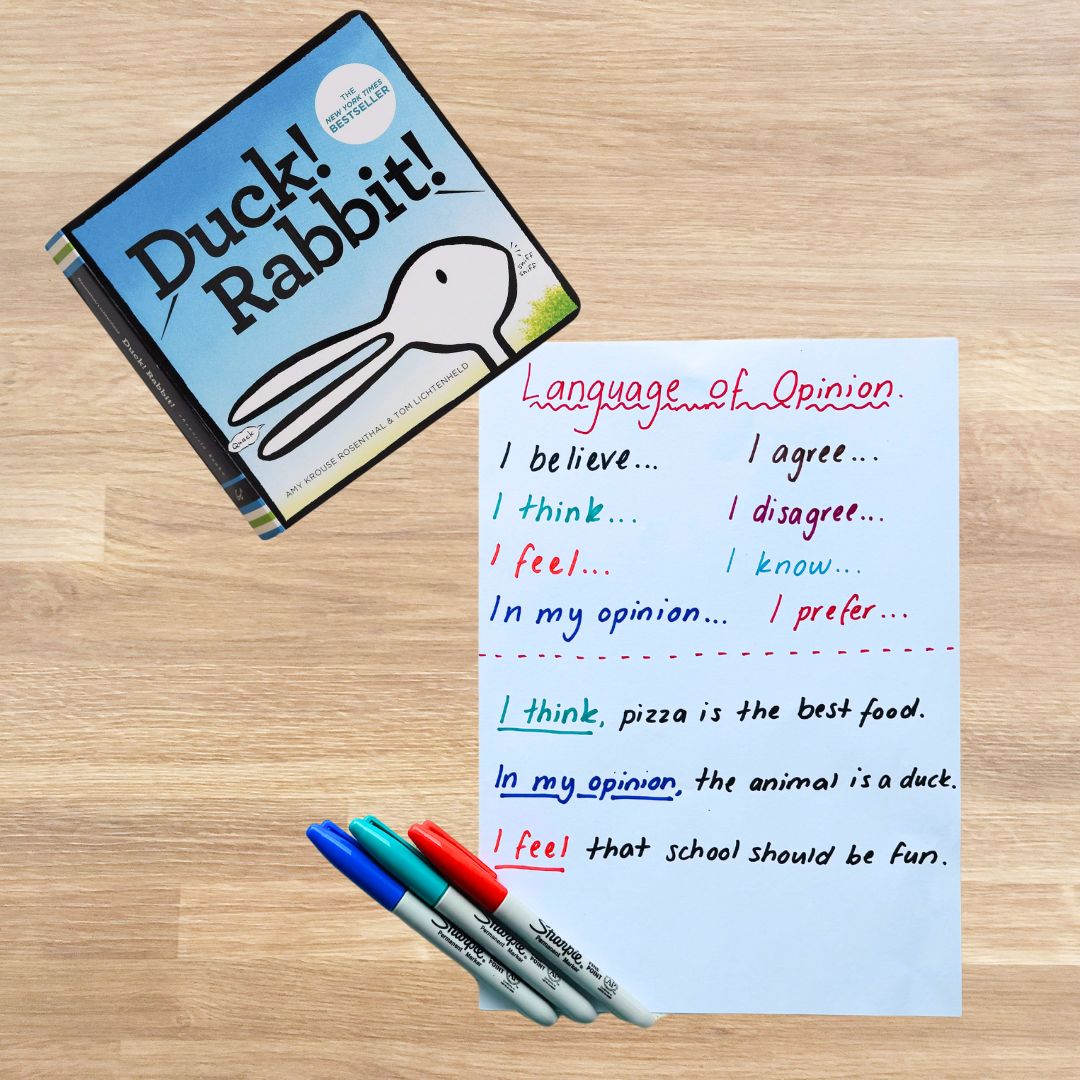 THE
NEW YORK TIMES
BESTSELLER
Duck!
Rabbit!
sniff
sniff
Quack
AMY KROUSE ROSENTHAL & TOM LICHTENHELD
Duck! Rabbit!
Language of Opinion.
I believe... I agree...
I think... I disagree...
I feel... I know...
In my opinion... I prefer...
I think, pizza is the best food.
In my opinion, the animal is a duck.
I feel that school should be fun.
Sharpie
Permanent Marker
POINT
Sharpie
Permanent Marker
POINT
Sharpie
Permanent Marker
FINE POINT
AP